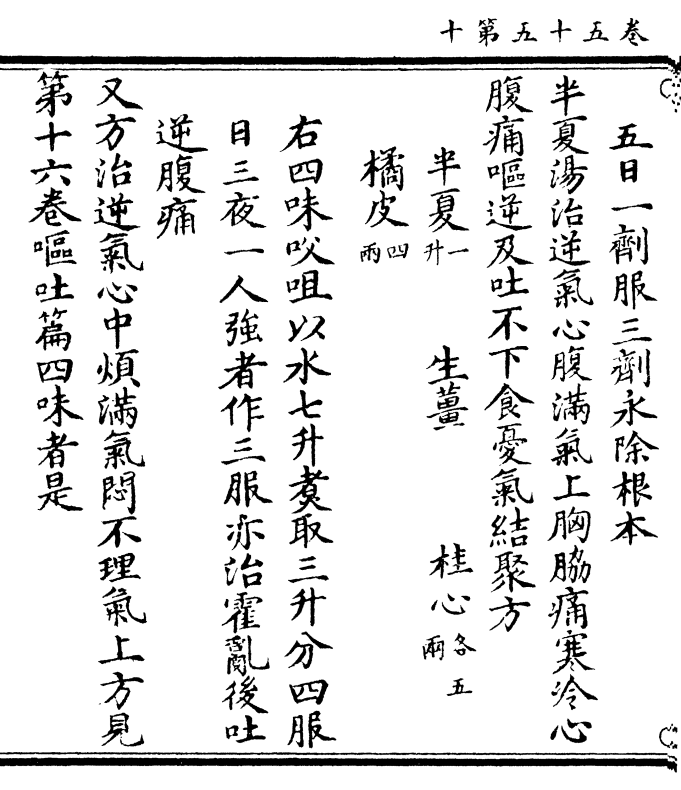 卷五十五第十
五日一劑服三劑永除根本
半夏湯治逆氣心腹滿氣上胸脇痛寒冷心
腹痛嘔逆及吐不下食憂氣結聚方
半夏一升 生薑 桂心各五兩
橘皮四兩
右四味㕮咀以水七升煮取三升分四服
日三夜一人強者作三服亦治霍亂後吐
逆腹痛
又方治逆氣心中煩滿氣悶不理氣上方見
第十六卷嘔吐篇四味者是